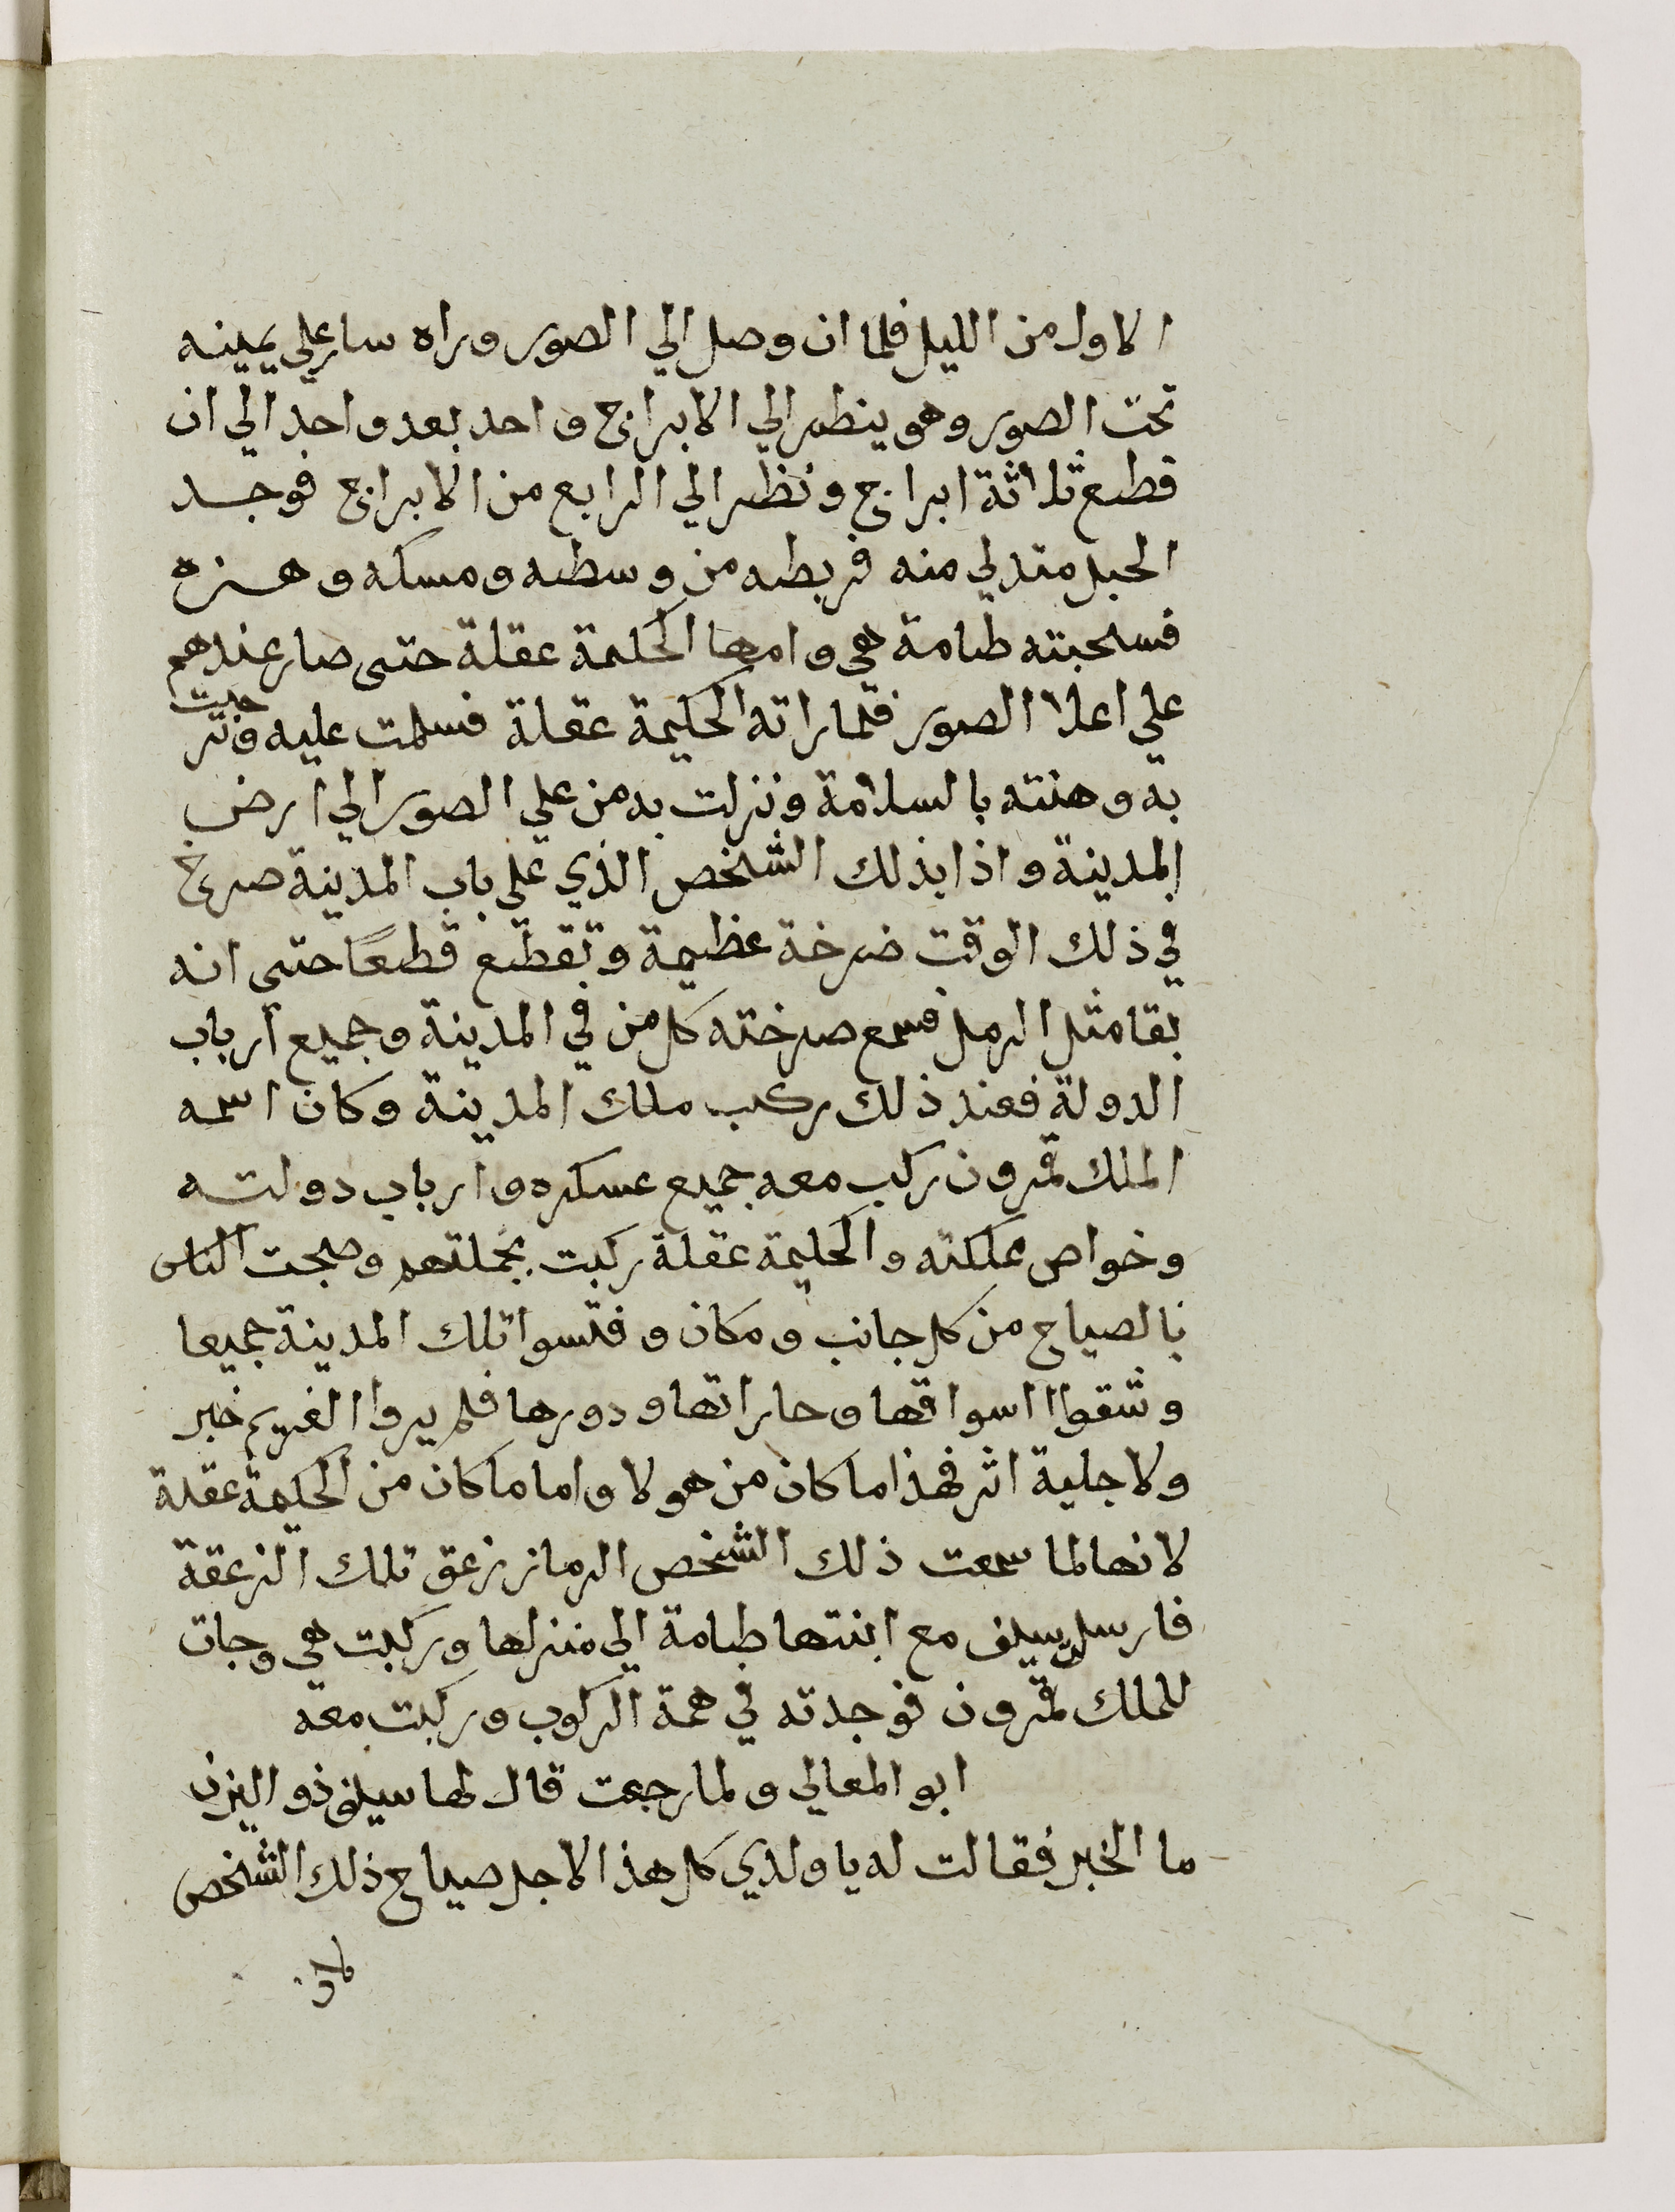 الاول من الليل فلما ان وصل الي الصور وراه سار علي يمينه
تحت الصور وهو ينظر الي الابراج واحد بعد واحد الي ان
قطع ثلاثة ابراج ونظر الي الرابع من الابراج فوجد
الحبل متدلي منه فربطه من وسطه ومسكه وهزه
فسحبته طامة هي وامها الحكيمة عقلة حتى صار عندهم
علي اعلا الصور فلما راته الحكيمة عقلة فسلمت عليه وترحبت
به وهنته بالسلامة ونزلت به من علي الصور الي ارض
المدينة واذا بذلك الشخص الذي علي باب المدينة صرخ
في ذلك الوقت صرخة عظيمة وتقطع قطعًا حتى انه
بقا مثل الرمل فسمع صرخته كل من في المدينة وجميع ارباب
الدولة فعند ذلك ركب ملك المدينة وكان اسمه
الملك قمرون ركب معه جميع عسكره وارباب دولته
وخواص مملكته والحكيمة عقلة ركبت بجملتهم وضجت الناس
بالصياح من كل جانب ومكان وفتسوا تلك المدينة جميعا
وشقوا اسواقها وحاراتها ودورها فلم يروا الغريم خبر
ولا جلية اثر فهذا ما كان من هولا واما ما كان من الحكيمة عقلة
لانها لما سمعت ذلك الشخص الرماز زعق تلك الزعقة
فارسلت سيف مع ابنتها طامة الي منزلها وركبت هي وجات
للملك قمرون فوجدته في همة الركوب وركبت معه
ابو المعالي ولما رجعت قال لها سيف ذو اليزن
ما الخبر فقالت له يا ولدي كل هذا لاجل صياح ذلك الشخص